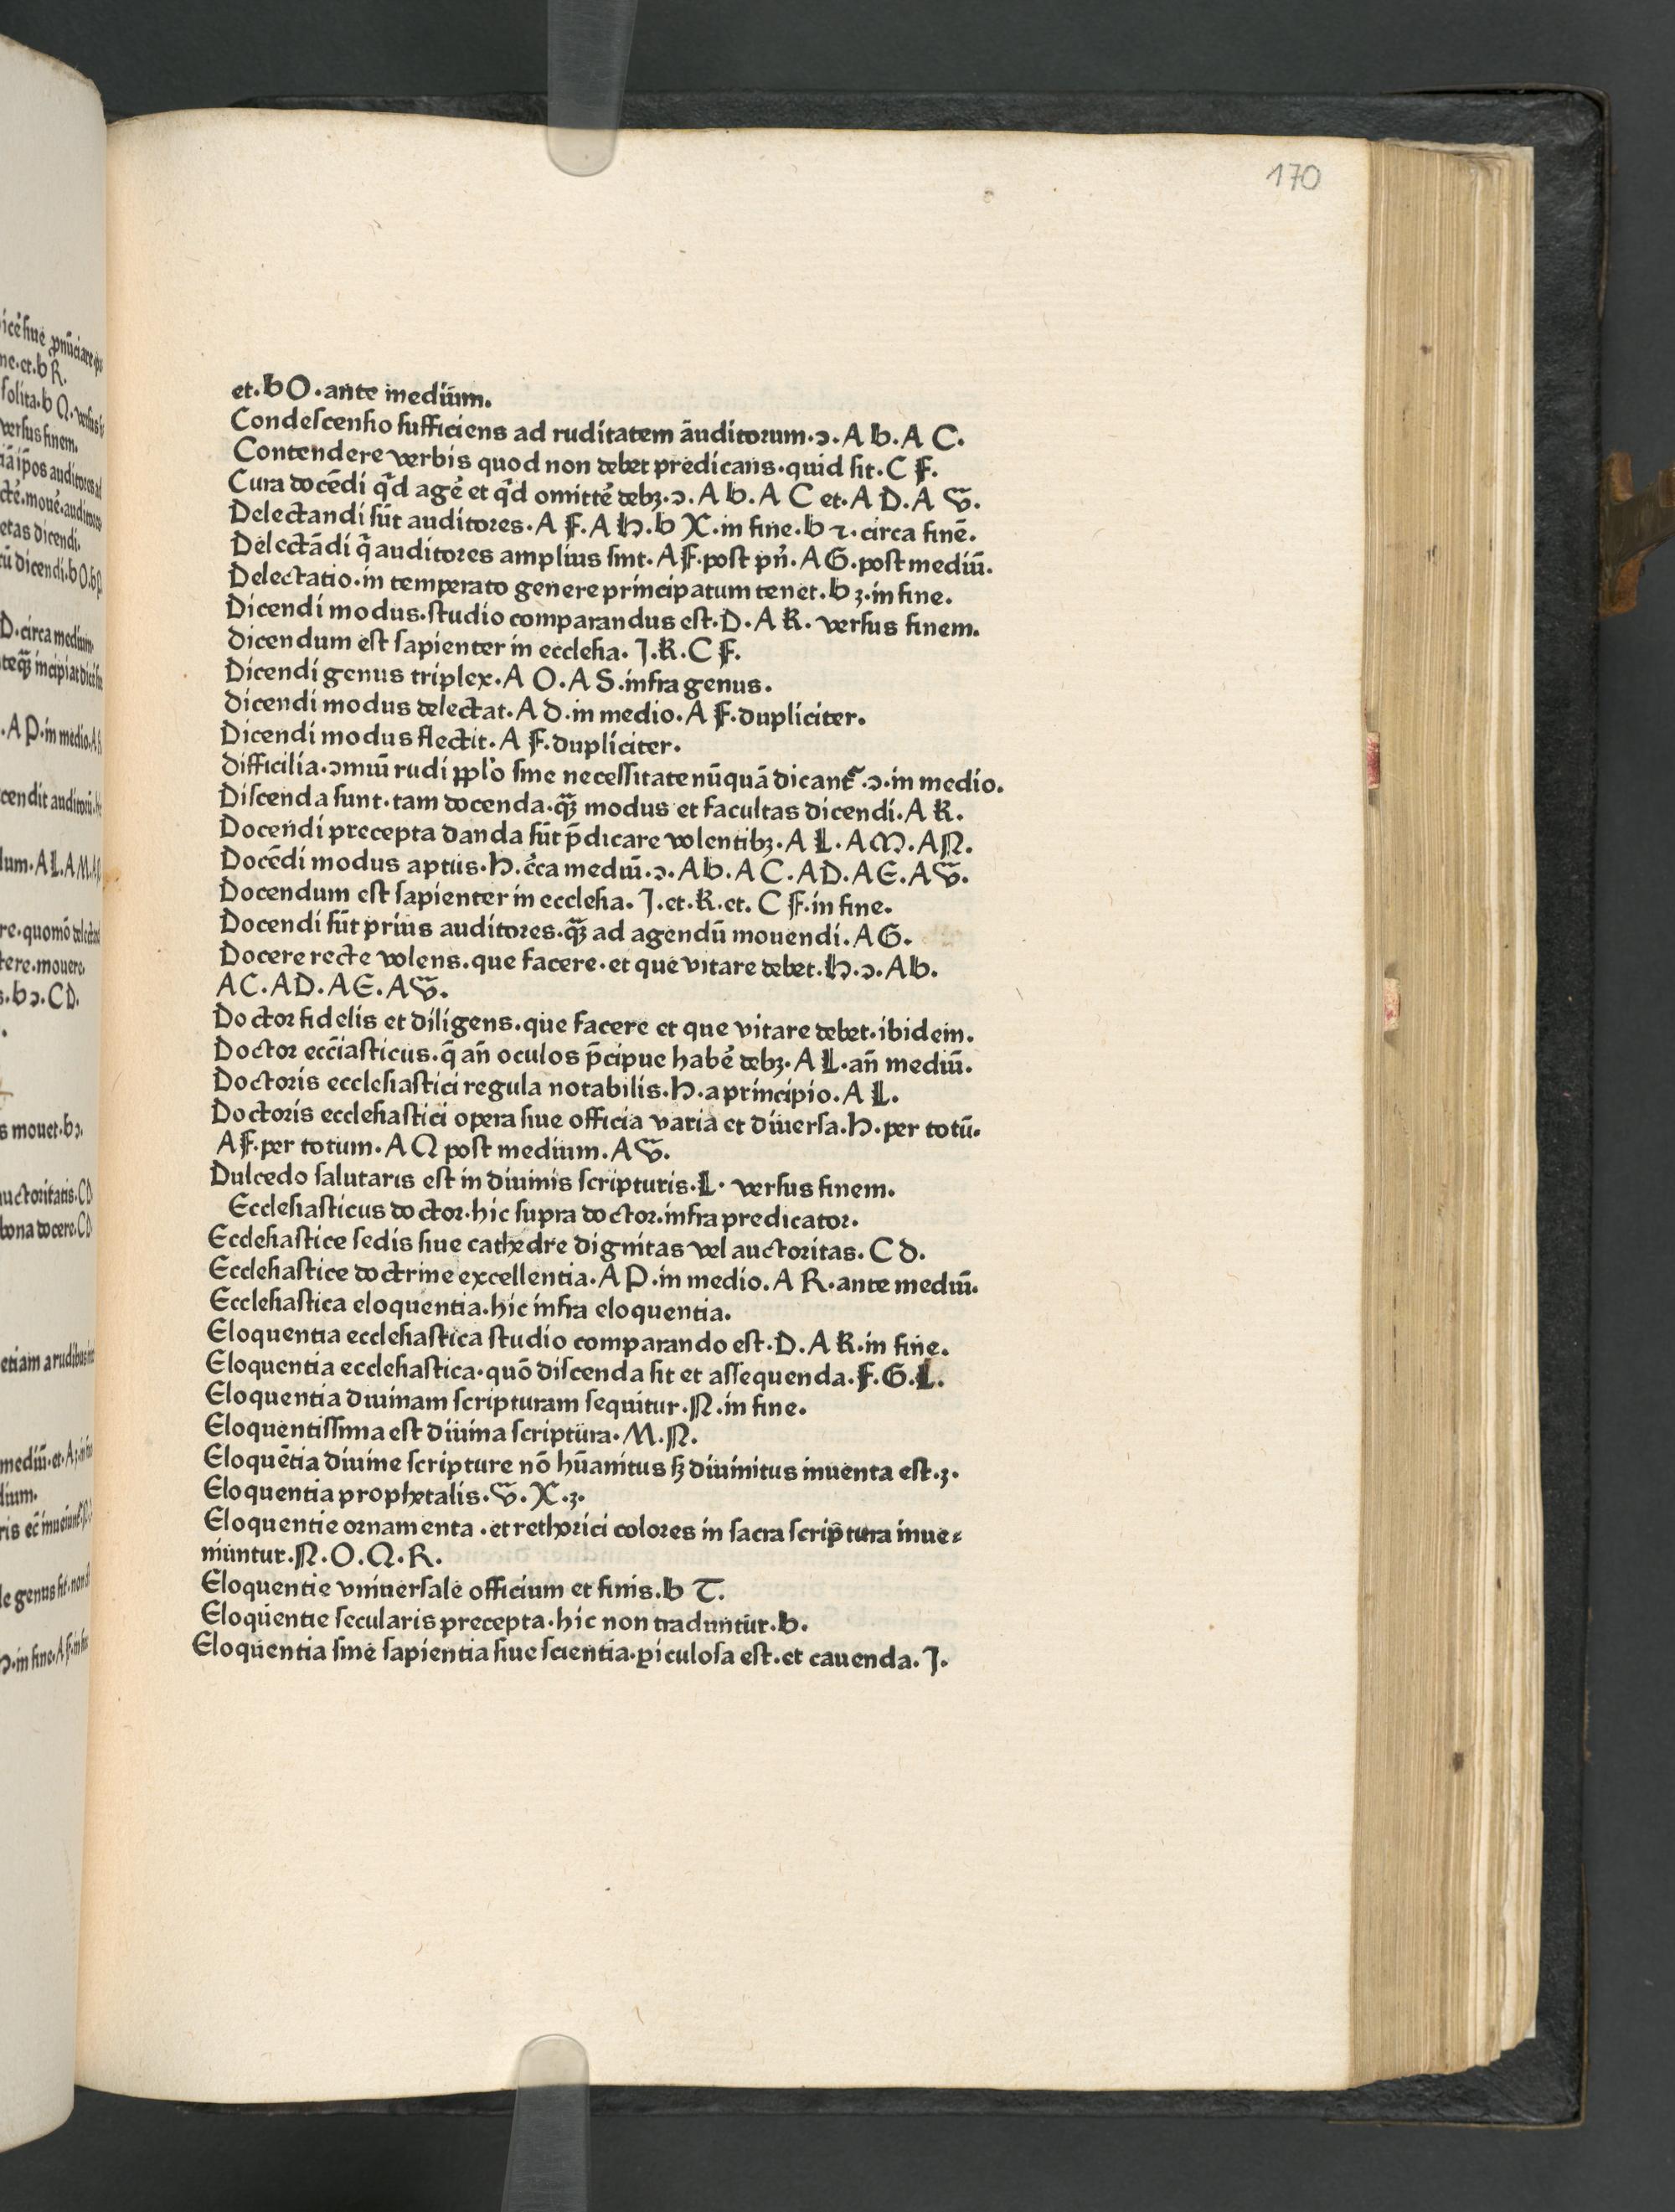 170
et. b O. ante mediū.
Condescensio sufficiens ad ruditatem auditorum. ɔ. A b. A C.
Contendere verbis quod non debet predicans. quid sit. C F.
Cura docēdi qͥd agẽ et qͥd omittẽ debꝫ. ɔ. A b. A C et. A D. A V.
Delectandi sūt auditores. A F. A H. b X. in fine. b ⁊. circa finē.
Delectādi q̄ auditores amplius sint. A F. post pn̄. A G. post mediū.
Delectatio. in temperato genere principatum tenet. b ꝫ. in fine.
Dicendi modus. studio comparandus est. D. A K. versus finem.
dicendum est sapienter in ecclesia. J. K. C F.
Dicendi genus triplex. A O. A S. infra genus.
dicendi modus delectat. A d. in medio. A F. dupliciter.
Dicendi modus flectit. A F. dupliciter.
difficilia. ɔmuī rudi ppl'o sine necessitate nūquā dicant᷑. ɔ. in medio.
Discenda sunt. tam docenda. qꝫ̄ modus et facultas dicendi. A K.
Docendi precepta danda sūt p̄dicare volentibꝫ. A L. A M. A N.
Docēdi modus aptus. H. c̄ca mediū. ɔ. A b. A C. A D. A E. A V.
Docendum est sapienter in ecclesia. J. et. K. et. C F. in fine.
Docendi sūt prius auditores. qꝫ̄ ad agendū mouendi. A G.
Docere recte volens. que facere. et que vitare debet. H. ɔ. A b.
A C. A D. A E. A V.
Doctor fidelis et diligens. que facere et que vitare debet. ibidem.
Doctor ecc̄iasticus. q̄ an̄ oculos p̄cipue habẽ debꝫ. A L. an̄ mediū.
Doctoris ecclesiastici regula notabilis. H. a principio. A L.
Doctoris ecclesiastici opera siue officia varia et diuersa. H. per totū.
A F. per totum. A Q post medium. A V.
Dulcedo salutaris est in diuinis scripturis. L. versus finem.
Ecclesiasticus doctor. hic supra doctor. infra predicator.
Ecclesiastice sedis siue cathedre dignitas vel auctoritas. C d.
Ecclesiastice doctrine excellentia. A P. in medio. A R. ante mediū.
Ecclesiastica eloquentia. hic infra eloquentia.
Eloquentia ecclesiastica studio comparando est. D. A K. in fine.
Eloquentia ecclesiastica. quō discenda sit et assequenda. F. G. L.
Eloquentia diuinam scripturam sequitur. N. in fine.
Eloquentissima est diuina scriptura. M. N.
Eloquētia diuine scripture nō hūanitus sꝫ diuinitus inuenta est. ꝫ.
Eloquentia prophetalis. V. X. ꝫ.
Eloquentie ornamenta. et rethorici colores in sacra scriptura inue⸗
niuntur. N. O. Q. R.
Eloquentie vniuersale officium et finis. b T.
Eloquentie secularis precepta. hic non traduntur. b.
Eloquentia sine sapientia siue scientia. ꝑiculosa est. et cauenda. J.